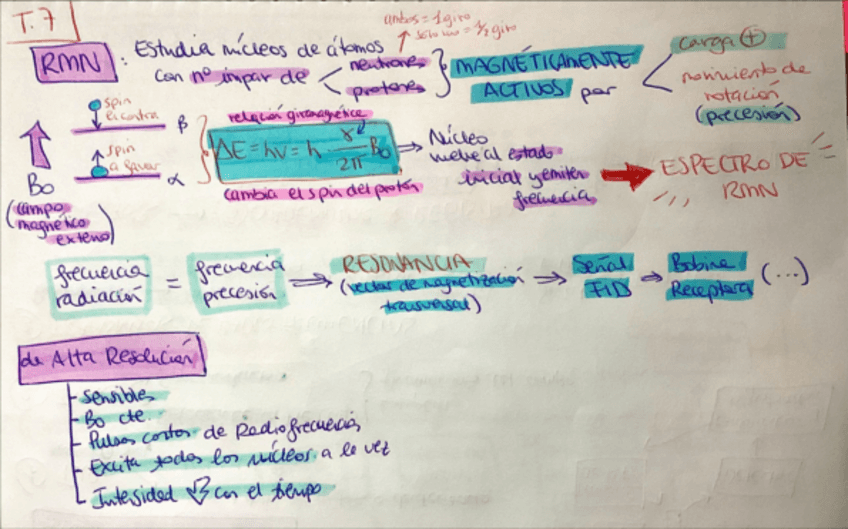 T.7
ambos = 1 giro
solo uno = 1/2 giro
RMN : Estudia núcleos de átomos
con nº impar de
neutrones
protones
MAGNÉTICAMENTE
ACTIVOS por
carga ⊕
movimiento de
rotación
(precesión)
spin
en contra
β
spin
a favor
α
B₀
(campo
magnético
externo)
relación giromagnética
ΔE = hν = h γ/2π B₀
cambia el spin del protón
Núcleo
vuelve al estado
inicial y emiten
frecuencia
ESPECTRO DE
RMN
frecuencia
radiación
=
frecuencia
precesión
RESONANCIA
(vector de magnetización
transversal)
Señal
FID
Bobina
Receptora
(...)
de Alta Resolución
- Sensibles
- B₀ cte.
- Pulsos cortos de Radiofrecuencia
- Excita todos los núcleos a la vez
- Intensidad ⇩ con el tiempo